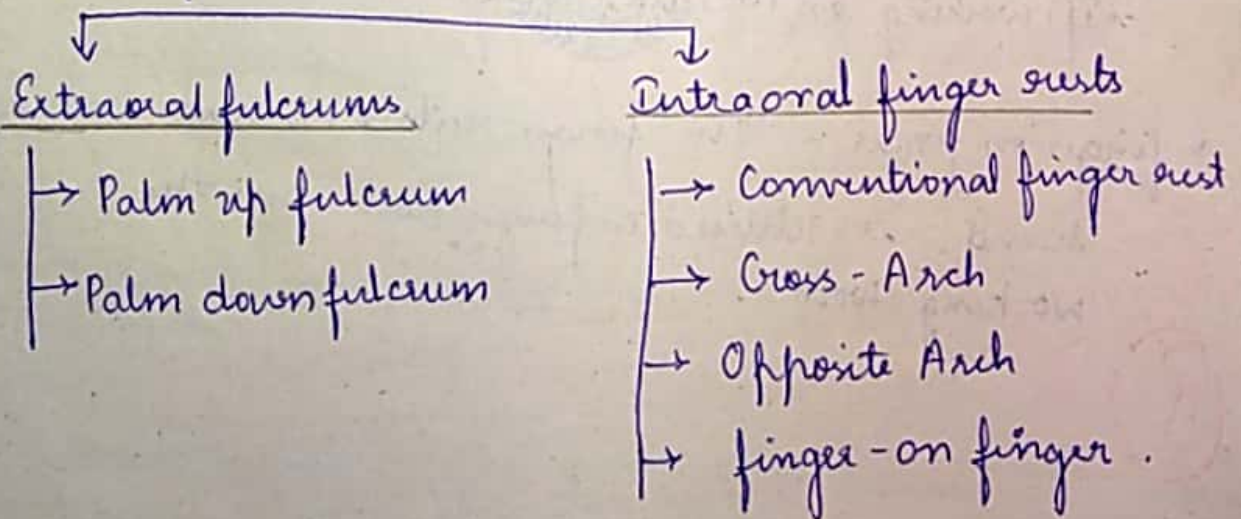 Extraoral fulcrums
→ Palm up fulcrum
→ Palm down fulcrum
Intraoral finger rests
→ Conventional finger rest
→ Cross - Arch
→ Opposite Arch
→ finger - on finger .